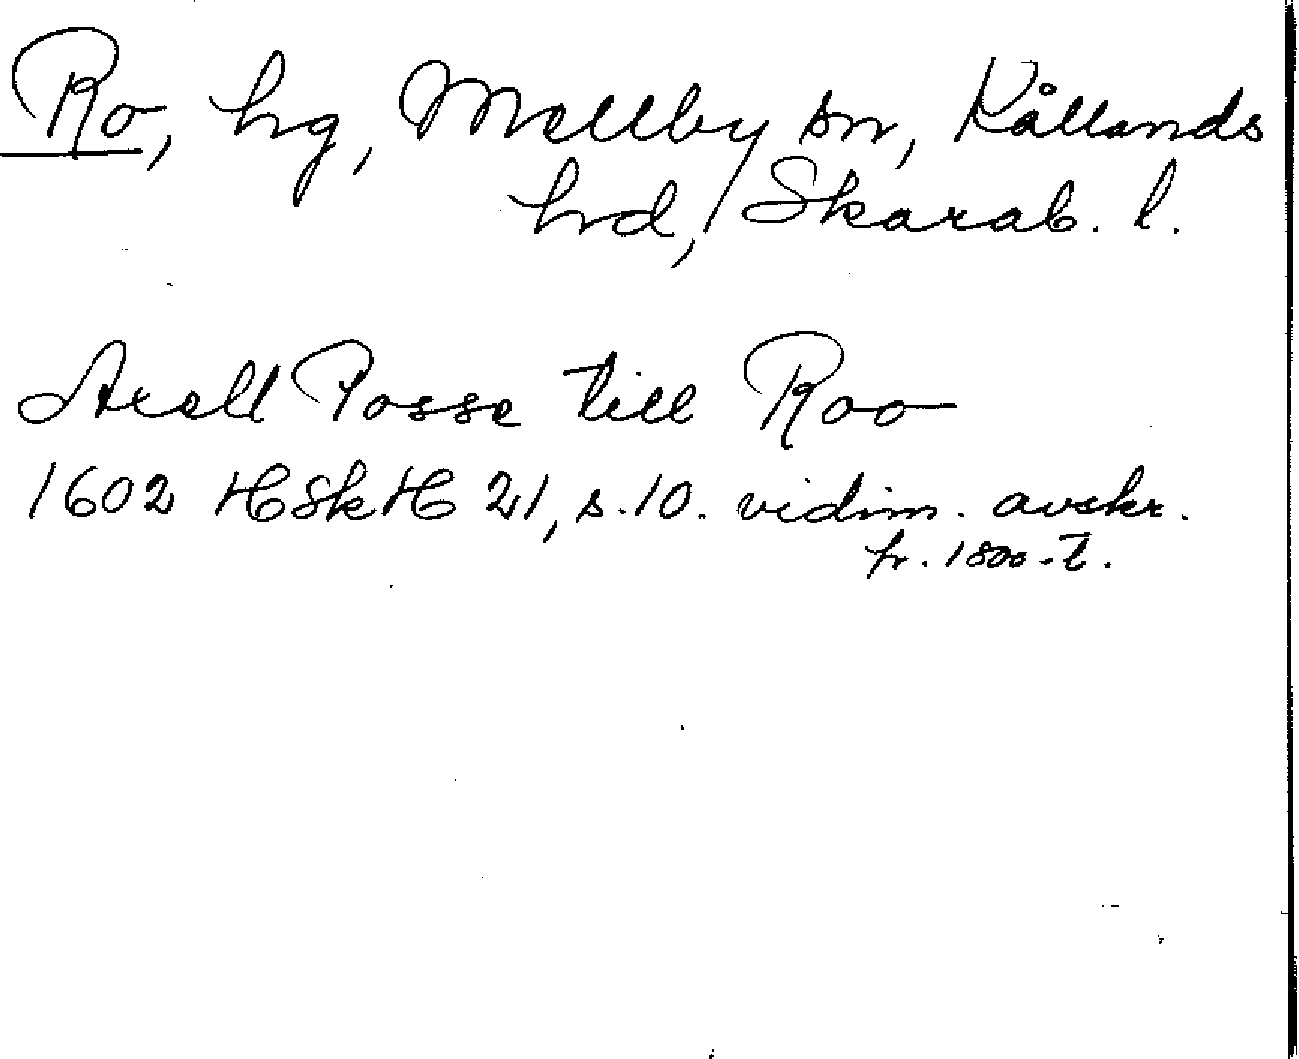 Ro, hg, Mellby sn, Kållands
hd, Skarab. l.
Axell Posse till Roo
1602 HSkH 21, s. 10. vidim. avskr.
fr. 1800-t.